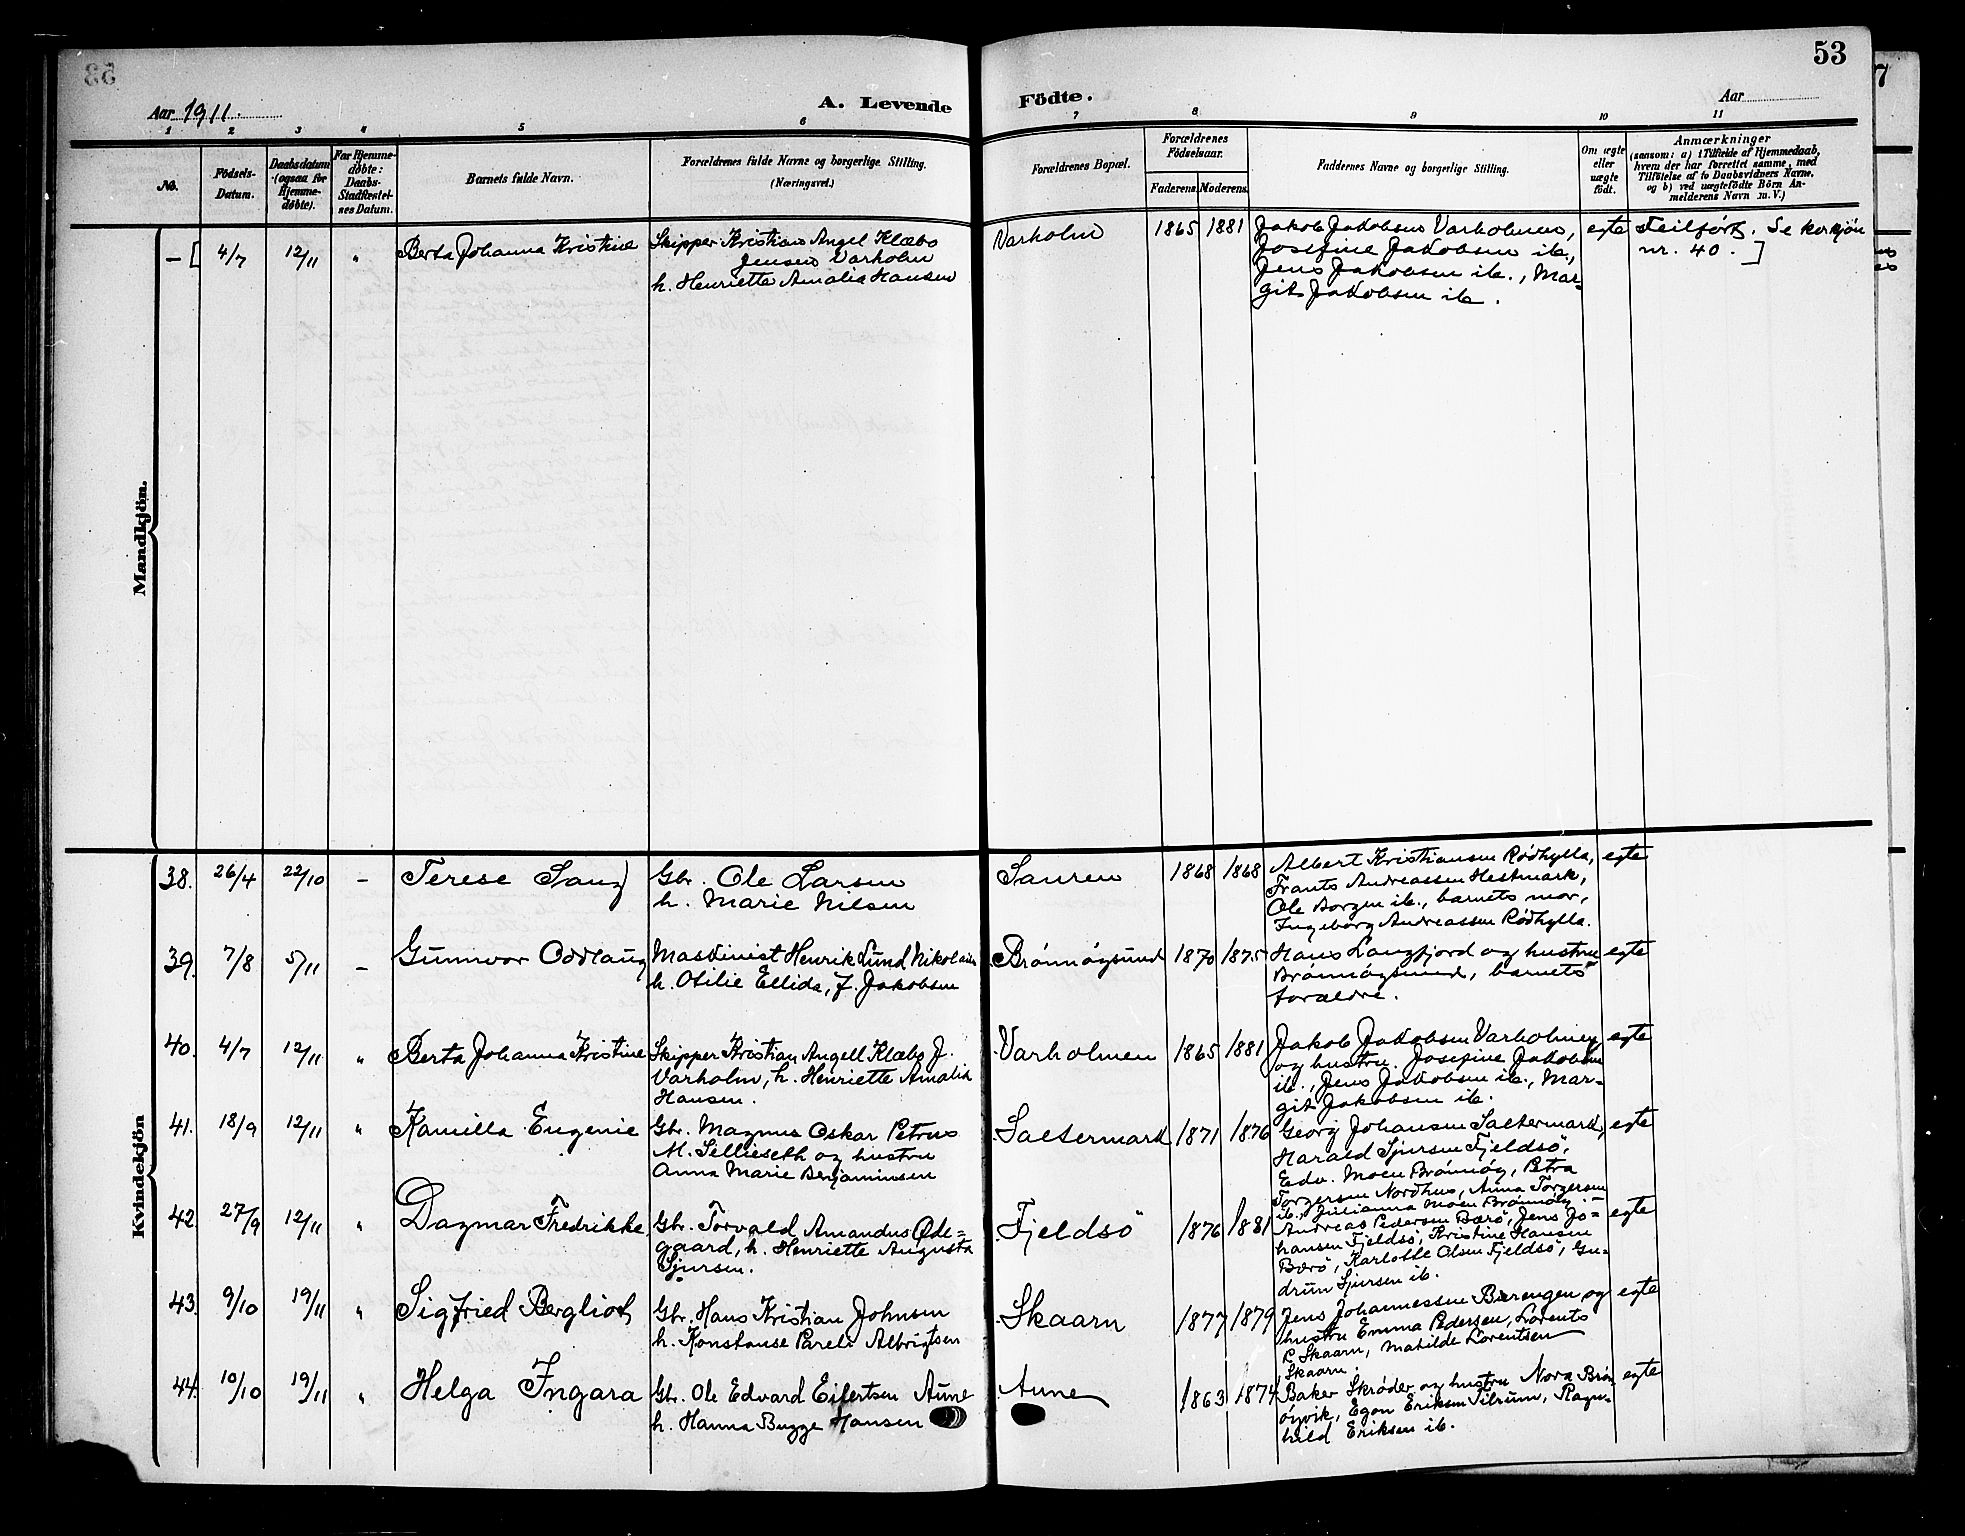 53
Aar 1911.
A. Levende Födte.
Aar
1 2 3 4 5 6 7 8 9 10 11
No.
Födsels-
Datum.
Daabsdatum
(ogsaa for
Hjemme-
døbte).
For Hjemme-
døbte:
Daabs-
Stadfæstel-
ses Datum.
Barnets fulde Navn.
Forældrenes fulde Navne og borgerlige Stilling.
(Næringsvei.)
Forældrenes Bopæl.
Forældrenes
Födselsaar.
Faderens.
Moderens.
Faddernes Navne og borgerlige Stilling.
Om ægte
eller
uægte
födt.
Anmærkninger
(saasom: a) i Tilfælde af Hjemmedaab,
hvem der har forrettet samme, med
Tilföielse af to Daabsvidners Navne,
og b) ved uægtefödte Börn An-
melderens Navn m. V.)
Mandkjön.
– [ 4/7 12/11 " Berta Johanna Kristine
Skipper Kristian Angel Klæbo
Jensen Varholm
h. Henriette Amalia Hansen
Varholm 1865 1881
Jakob Jakobsen Varholmen,
Josefine Jakobsen ib.,
Jens Jakobsen ib., Mar-
git Jakobsen ib.
egte
Feilført. Se kvkjön
nr. 40. ]
Kvindekjön
38. 26/4 22/10 – Terese Sang
Gbr. Ole Larsen
h. Marie Nilsen
Sauren 1868 1868
Albert Kristiansen Rødhylla,
Frants Andreassen Hestmark,
Ole Borgen ib., barnets mor,
Ingeborg Andreassen Rødhylla.
egte
39. 7/8 5/11 – Gunnvor Oddlaug
Maskinist Henrik Lund Nikolaisen
h. Otilie Ellida, f. Jakobsen
Brønnøysund 1870 1875
Hans Langfjord og hustru
Brønnøysund, barnets
forældre.
egte
40. 4/7 12/11 " Berta Johanna Kristine
Skipper Kristian Angell Klæbo J.
Varholm, h. Henriette Amalia
Hansen.
Varholmen 1865 1881
Jakob Jakobsen Varholmen
og hustru. Josefine Jakobsen
ib., Jens Jakobsen ib., Mar-
git Jakobsen ib.
egte
41. 18/9 12/11 " Kamilla Eugenie
Gbr. Magnus Oskar Petrus
M. Sellieseth og hustru
Anna Marie Benjaminsen
Saltermark 1871 1876
Georg Johansen Saltermark,
Harald Sjursen Fjeldsö,
Edv. Moen Brønnøy, Petra
Torgersen Nordhus, Anna Torgersen
ib., Julianna Moen Brønnøy.
egte
42. 27/9 12/11 " Dagmar Fredrikke
Gbr. Torvald Amandus Øde-
gaard, h. Henriette Augusta
Sjursen.
Fjeldsö 1876 1881
Andreas Pedersen Bærö, Jens Jo-
hansen Fjeldsö, Kristine Hansen
Bærö, Karlotte Olsen Fjeldsö, Gu-
drun Sjursen ib.
egte
43. 9/10 19/11 " Sigfried Bergliot
Gbr. Hans Kristian Johnsen
h. Konstanse Pareli Albrigtsen
Skaarn 1877 1879
Jens Johannessen Bærengen og
hustru Emma Pedersen, Lorents
P. Skaarn, Mathilde Lorentsen
Skaarn.
egte
44. 10/10 19/11 " Helga Ingara
Gbr. Ole Edvard Eilertsen Aune
h. Hanna Bugge Hansen
Aune 1863 1874
Baker Skrøder og hustru Nora Brøn-
øyvik, Egon Eriksen Tilrum, Ragn-
hild Eriksen ib.
egte